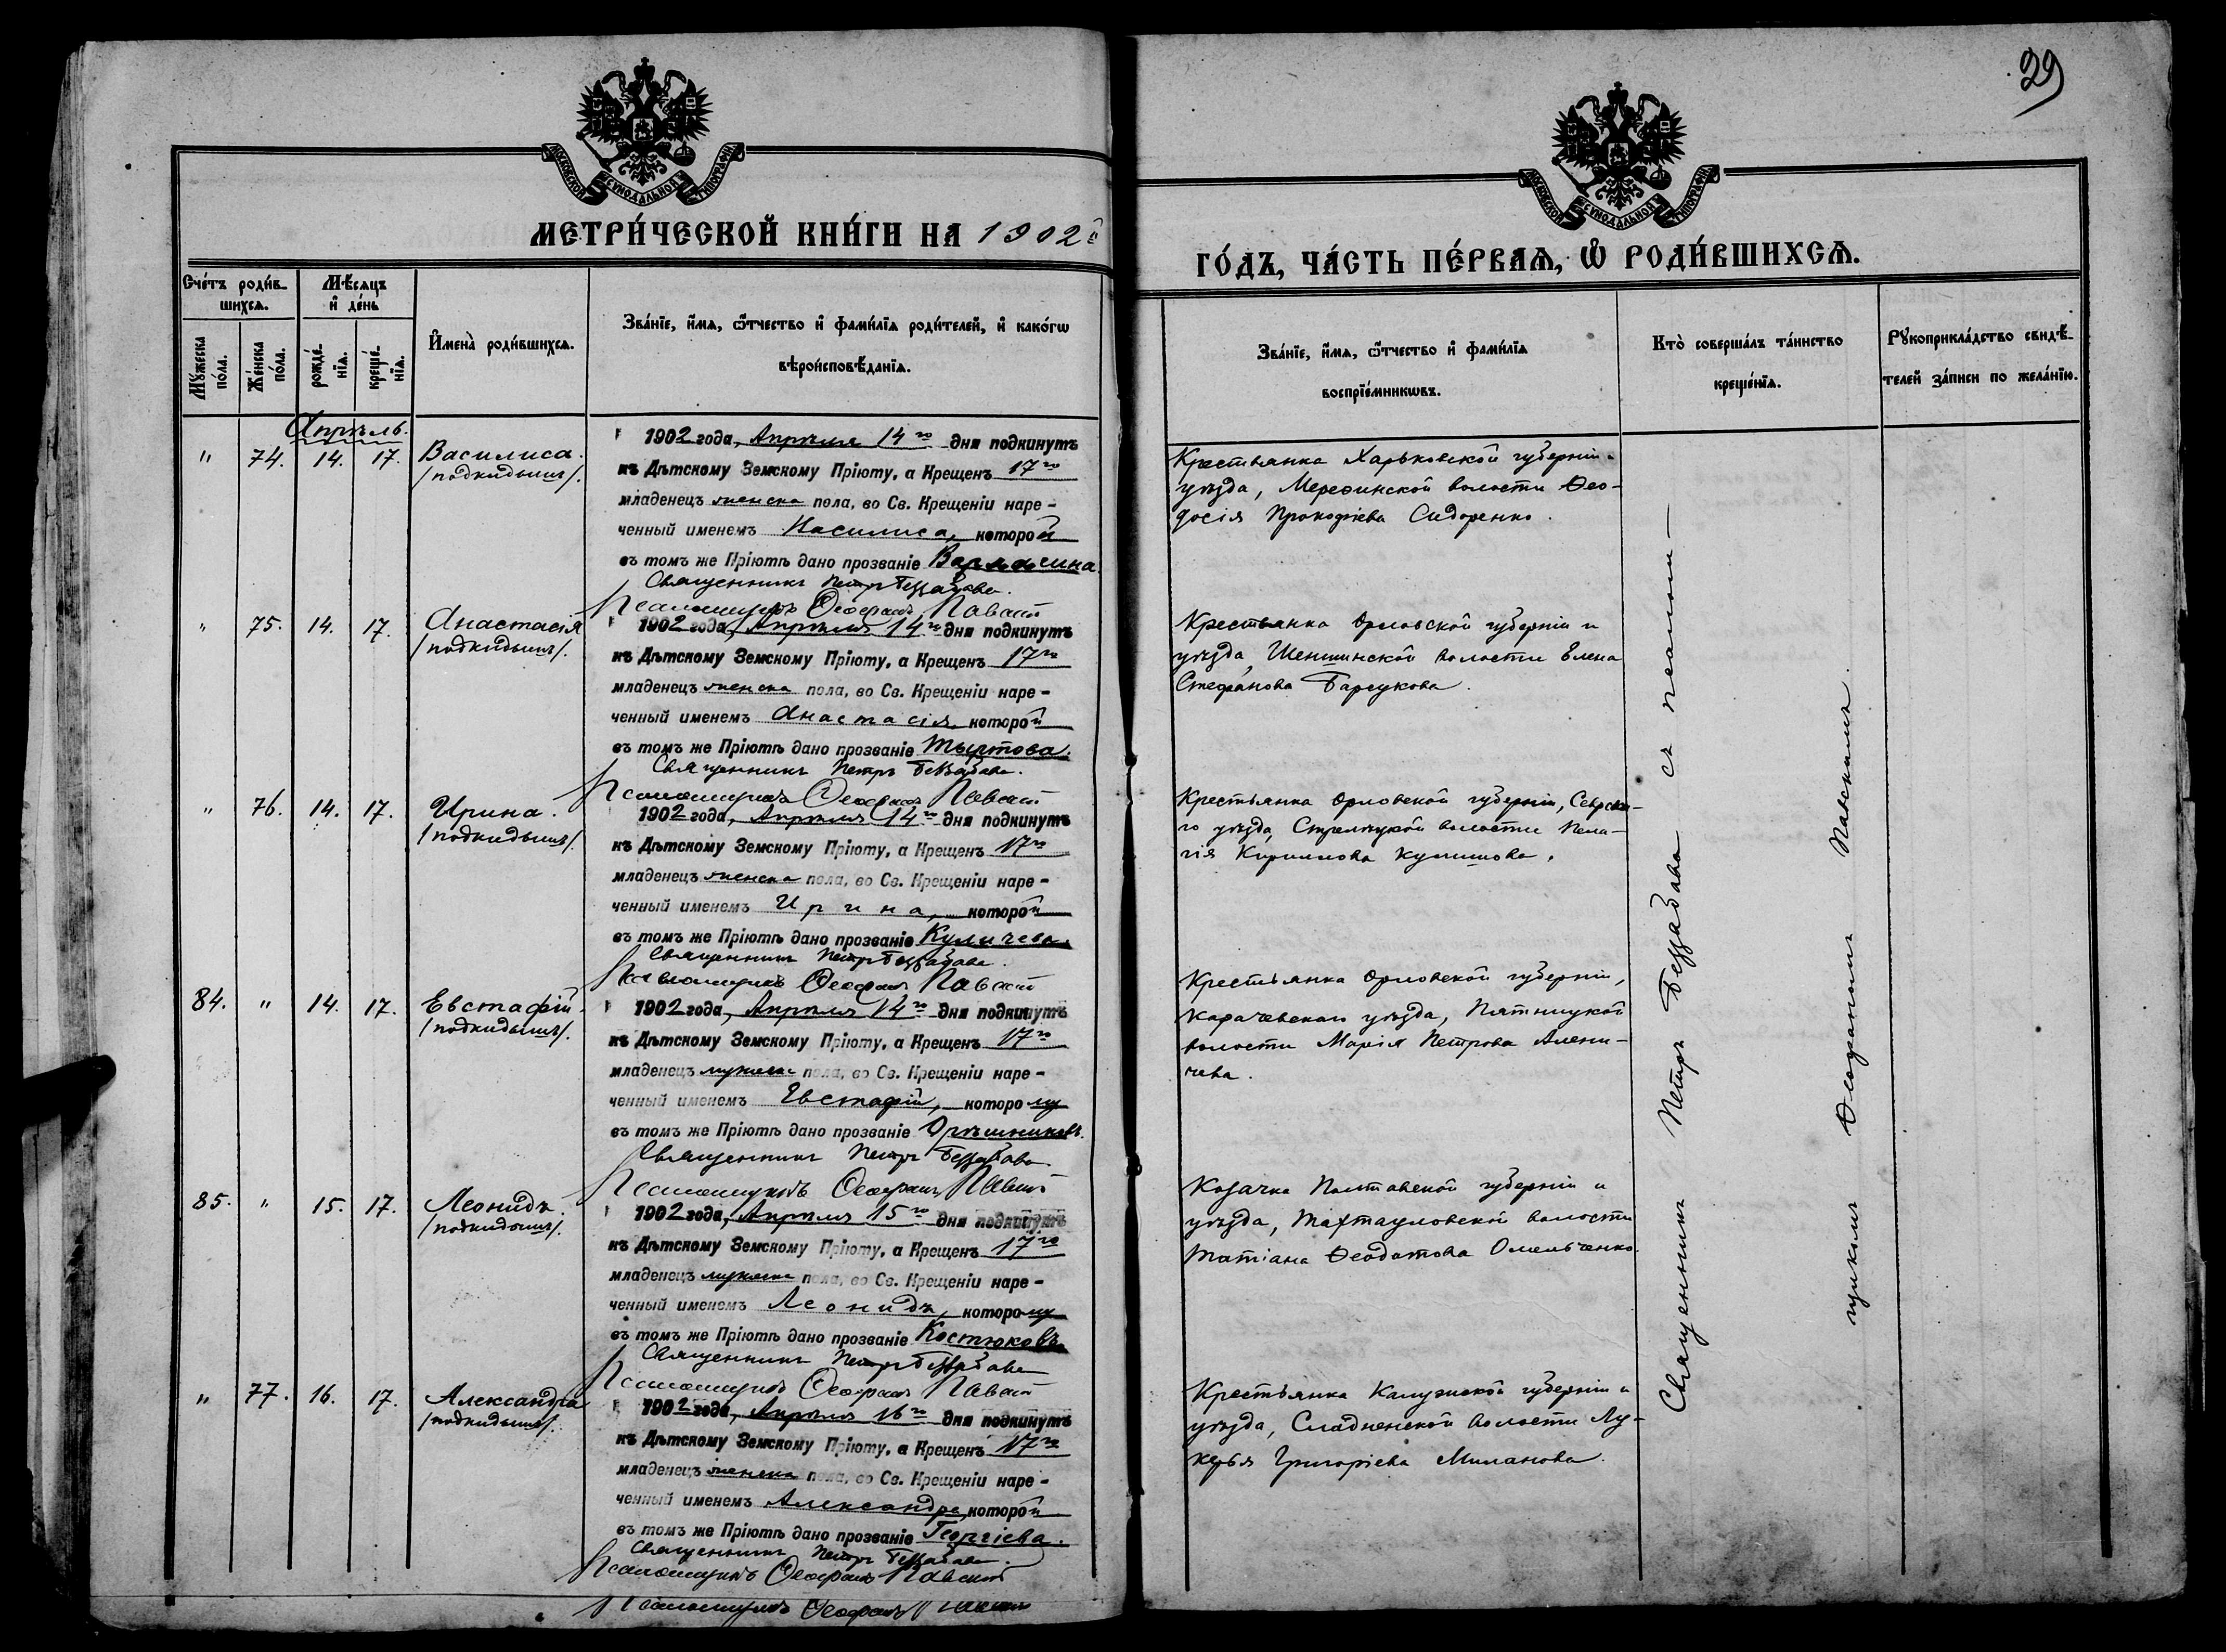 29
МОСКОВСКОЙ СѴНОДАЛЬНОЙ ТИПОГРАФІИ
МОСКОВСКОЙ СѴНОДАЛЬНОЙ ТИПОГРАФІИ
МЕТРИ́ЧЕСКОЙ КНИ́ГИ НА 1902й
ГО́ДЪ, ЧА́СТЬ ПЕ́РВАѦ, Ѡ РОДИ́ВШИХСѦ.
Сче́тъ роди́в-
шихсѧ.
Мѣ́сяцъ
и де́нь
Мꙋ́жеска по́ла.
Же́нска по́ла.
рожде́-нїѧ.
креще́-нїѧ.
Имена̀ роди́вшихсѧ.
Зва́нїе, и́мѧ, ѻ́тчество и фами́лїѧ роди́телей, и како́гѡ
вѣроисповѣ́данїѧ.
Зва́нїе, и́мѧ, ѻ́тчество и фами́лїѧ
воспрїе́мникѡвъ.
Кто̀ соверша́лъ та́инство
креще́нїѧ.
Рꙋкоприкла́дство свидѣ́-
телей за́писи по жела́нїю.
Апрѣль.
" 74. 14. 17. Василиса.
/подкидышъ/.
1902 года, Апрѣля 14го дня подкинутъ
къ Дѣтскому Земскому Пріюту, а Крещенъ 17го
младенецъ женска пола, во Св. Крещеніи наре-
ченный именемъ Василиса, которой
въ томъ же Пріютѣ дано прозваніе
Священникъ Петръ Беззабава.
Псаломщикъ Ѳеофанъ
Крестьянка Харьковской губерніи и
уѣзда, Мерефинской волости Ѳео-
досія Прокофіева Сидоренко.
" 75. 14. 17. Анастасія
/подкидышъ/.
1902 года, Апрѣля 14го дня подкинутъ
къ Дѣтскому Земскому Пріюту, а Крещенъ 17го
младенецъ женска пола, во Св. Крещеніи наре-
ченный именемъ Анастасія, которой
въ томъ же Пріютѣ дано прозваніе Тыртова.
Священникъ Петръ Беззабава.
Псаломщикъ Ѳеофанъ
Крестьянка Орловской губерніи и
уѣзда, Шеншинской волости Елена
Стефанова Барсукова.
" 76. 14. 17. Ирина.
/подкидышъ/.
1902 года, Апрѣля 14го дня подкинутъ
къ Дѣтскому Земскому Пріюту, а Крещенъ 17го
младенецъ женска пола, во Св. Крещеніи наре-
ченный именемъ Ирина, которой
въ томъ же Пріютѣ дано прозваніе Куличева.
Священникъ Петръ Беззабава.
Псаломщикъ Ѳеофанъ
Крестьянка Орловской губерніи, Сѣвска-
го уѣзда, Стрѣлецкой волости Пела-
гія Кириллова
84. " 14. 17. Евстафій.
/подкидышъ/.
1902 года, Апрѣля 14го дня подкинутъ
къ Дѣтскому Земскому Пріюту, а Крещенъ 17го
младенецъ мужеска пола, во Св. Крещеніи наре-
ченный именемъ Евстафій, которому
въ томъ же Пріютѣ дано прозваніе Орѣшниковъ.
Священникъ Петръ Беззабава.
Псаломщикъ Ѳеофанъ
Крестьянка Орловской губерніи,
Карачевскаго уѣзда, Пятницкой
волости Марія Петрова Алени-
чева.
85. " 15. 17. Леонидъ.
/подкидышъ/.
1902 года, Апрѣля 15го дня подкинутъ
къ Дѣтскому Земскому Пріюту, а Крещенъ 17го
младенецъ мужеска пола, во Св. Крещеніи наре-
ченный именемъ Леонидъ, которому
въ томъ же Пріютѣ дано прозваніе Костюковъ.
Священникъ Петръ Беззабава
Псаломщикъ Ѳеофанъ
Козачка Полтавской губерніи и
уѣзда, Тахтауловской волости
Татіана Ѳеодотова Омельченко.
" 77. 16. 17. Александра
/подкидышъ/.
1902 года, Апрѣля 16го дня подкинутъ
къ Дѣтскому Земскому Пріюту, а Крещенъ 17го
младенецъ женска пола, во Св. Крещеніи наре-
ченный именемъ Александра, которой
въ томъ же Пріютѣ дано прозваніе Георгіева.
Священникъ Петръ Беззабава.
Псаломщикъ Ѳеофанъ
Псаломщикъ Ѳеофанъ
Крестьянка Калужской губерніи и
уѣзда, Сладненской волости Лу-
керья Григоріева Миланова.
Священникъ Петръ Беззабава съ псалом-
щикомъ Ѳеофаномъ Павскимъ.